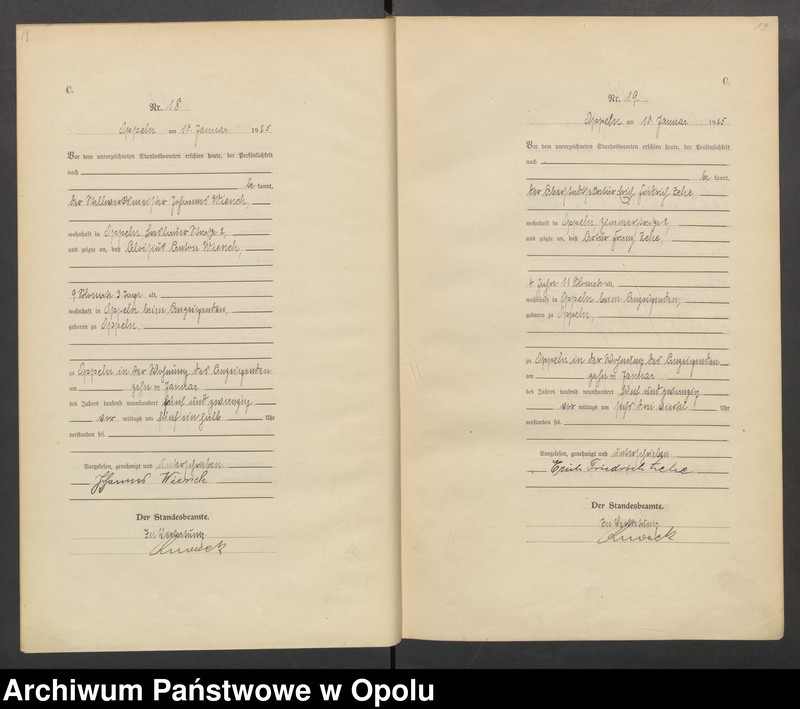 18
C.
Nr. 18.
Oppeln am 10. Januar 1925
Vor dem unterzeichneten Standesbeamten erschien heute, der Persönlichkeit
nach
be kannt,
der Stellwerksmeister Johannes Wiench,
wohnhaft in Oppeln, Straße 2,
und zeigte an, daß Aloisius Anton Wiench,
9 Monate 3 Tage alt,
wohnhaft in Oppeln beim Anzeigenden,
geboren zu Oppeln,
zu Oppeln in der Wohnung des Anzeigenden
am zehnten Januar
des Jahres tausend neunhundert fünf und zwanzig
vor mittags um fünf ein halb Uhr
verstorben sei.
Vorgelesen, genehmigt und unterschrieben
Johannes Wiench
Der Standesbeamte.
In Vertretung
19
C.
Nr. 19.
Oppeln am 10. Januar 1925
Vor dem unterzeichneten Standesbeamten erschien heute, der Persönlichkeit
nach
be kannt,
der Erich Friedrich Zche,
wohnhaft in Oppeln, Zimmerstraße 2,
und zeigte an, daß Artur Franz Zche,
4 Jahre 11 Monate alt,
wohnhaft in Oppeln beim Anzeigenden,
geboren zu Oppeln,
zu Oppeln in der Wohnung des Anzeigenden
am zehnten Januar
des Jahres tausend neunhundert fünf und zwanzig
vor mittags um sechs drei viertel Uhr
verstorben sei.
Vorgelesen, genehmigt und unterschrieben
Erich Friedrich
Der Standesbeamte.
In Vertretung
Archiwum Państwowe w Opolu